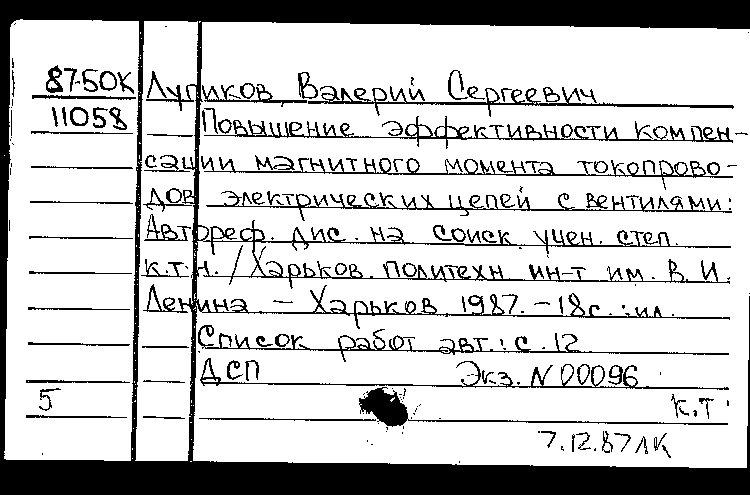 87-50К Лупиков, Валерий Сергеевич
11058 Повышение эффективности компен-
сации магнитного момента токопрово-
дов электрических цепей с вентилями:
Автореф. дис. на соиск. учен. степ.
к.т.н. / Харьков. политехн. ин-т им. В. И.
Ленина. - Харьков, 1987. - 18 с. : ил.
Список работ авт.: с. 12
ДСП Экз. N 00096
5 к.т
7.12.87 ЛК